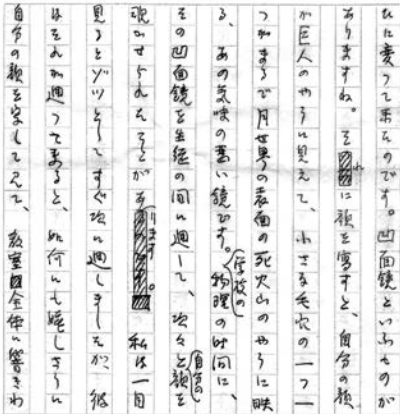 ひに変つて来たのです。凹面鏡といふものが
ありますね。それに顔を写すと、自分の顔
が巨人のやうに見えて、小さな毛穴の一つ一
つがまるで月世界の表面の死火山のやうに映
る、あの気味の悪い鏡です。学校の物理の時間に、
その凹面鏡を生徒の間に廻して、次々と自分の顔を
覗かせられたことがあります。私は一目
見るとゾツとしてすぐ次に廻しましたが、彼
はそれが廻つて来ると、如何にも嬉しさうに
自分の顔を写して見て、教室全体に響きわ